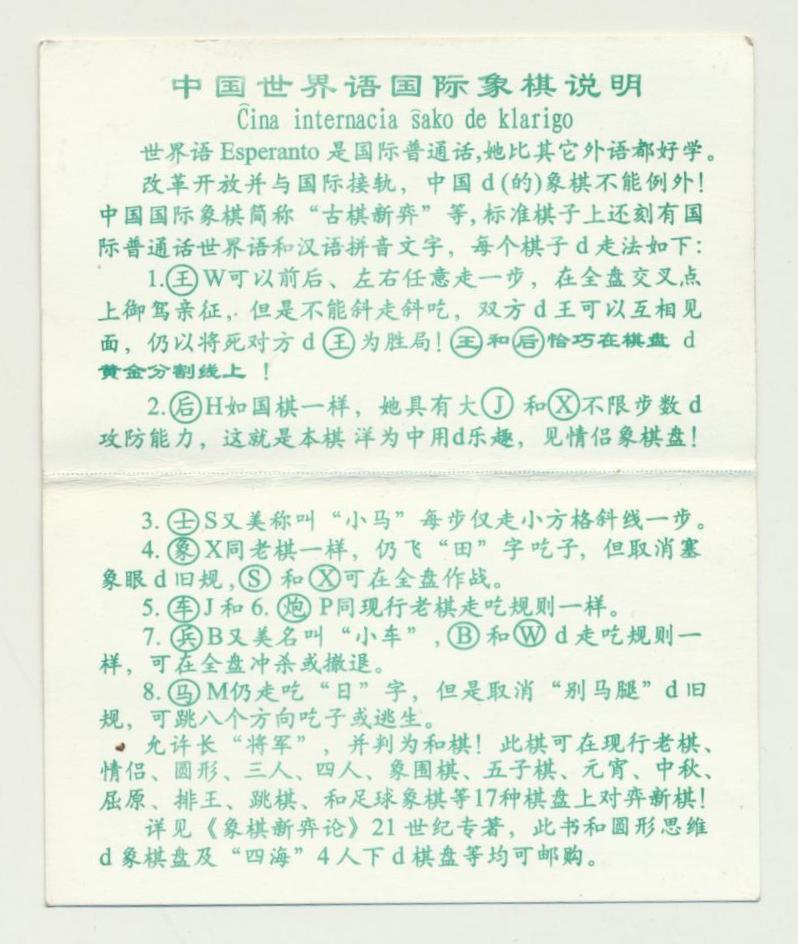 中国世界语国际象棋说明
Ĉina internacia ŝako de klarigo
世界语 Esperanto 是国际普通话,她比其它外语都好学。
改革开放并与国际接轨，中国 d (的)象棋不能例外！
中国国际象棋简称“古棋新弈”等,标准棋子上还刻有国
际普通话世界语和汉语拼音文字，每个棋子 d 走法如下：
1.王W可以前后、左右任意走一步，在全盘交叉点
上御驾亲征，但是不能斜走斜吃，双方 d 王可以互相见
面，仍以将死对方 d 王为胜局！王和后恰巧在棋盘 d
黄金分割线上！
2.后H如国棋一样，她具有大J 和X不限步数 d
攻防能力，这就是本棋 洋为中用d乐趣，见情侣象棋盘！
3. 士S又美称叫“小马”每步仅走小方格斜线一步。
4. 象X同老棋一样，仍飞“田”字吃子，但取消塞
象眼 d 旧规,S 和X可在全盘作战。
5. 车J 和 6. 炮 P同现行老棋走吃规则一样。
7. 兵B又美名叫“小车”,B 和W d 走吃规则一
样，可在全盘冲杀或撤退。
8. 马M仍走吃“日”字，但是取消“别马腿”d 旧
规，可跳八个方向吃子或逃生。
允许长“将军”，并判为和棋！此棋可在现行老棋、
情侣、圆形、三人、四人、象围棋、五子棋、元宵、中秋、
屈原、排王、跳棋、和足球象棋等17种棋盘上对弈新棋！
详见《象棋新弈论》21 世纪专著，此书和圆形思维
d 象棋盘及“四海”4 人下 d 棋盘等均可邮购。